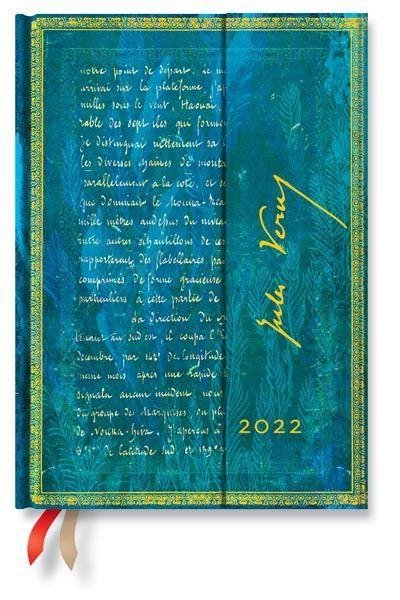 notre point de départ. Le m
arrivai sur la plateforme, j'a
milles sous le vent, Haouaï
rable des sept îles qui forme
Je distinguai nettement sa
les diverses chaînes de monta
parallèlement à la côte, et se
que dominait le Mouna-Rea
mille mètres au dessus du nivea
Entre autres échantillons de ces
rapportèrent des flabellaires pav
comprimés de forme gracieuse
particuliers à cette partie de
La direction du
tenant au sud est. Il coupa l'É
décembre, par 142° de longitude
même mois, après une rapide
signala aucun incident, nous
du groupe des Marquises. Au plu
de Nouka-Hiva. J'aperçus à
de latitude sud et 139°
Jules Verne
2022